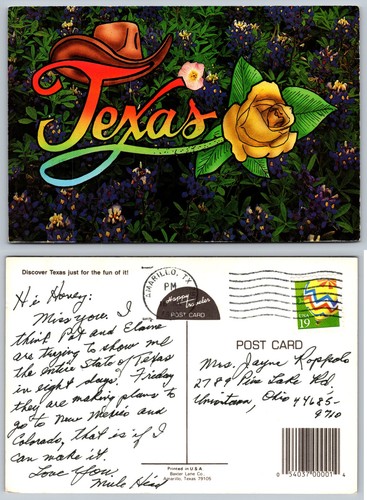 Texas
Discover Texas just for the fun of it!
AMARILLO, TX
PM
Happy Traveler
POST CARD
USA
19
POST CARD
Hi Honey:
Miss you. I
think Pat and Elaine
are trying to show me
the entire State of Texas
in eight days. Friday
they are making plans to
go to New Mexico and
Colorado, that is if I
can make it.
Love You.
Mule Head
Mrs. Jayne Roppolo
2789 Pine Lake Rd.
Uniontown, Ohio 44685-
9710
Printed in U.S.A.
Baxter Lane Co.
Amarillo, Texas 79105
0 54037 00001 4